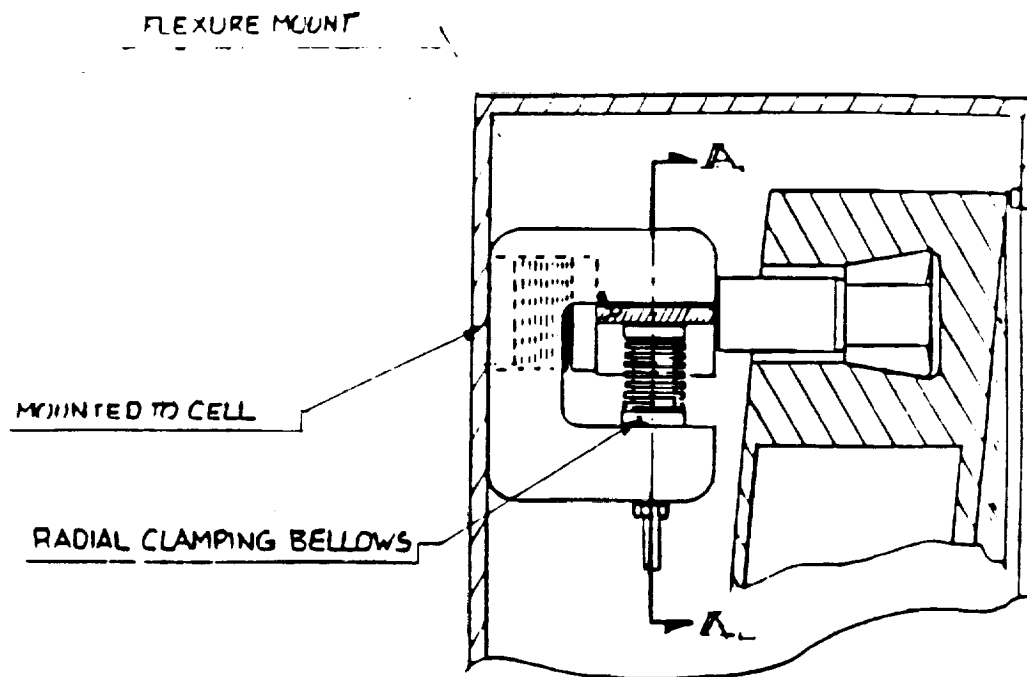 FLEXURE MOUNT
A
MOUNTED TO CELL
RADIAL CLAMPING BELLOWS
A